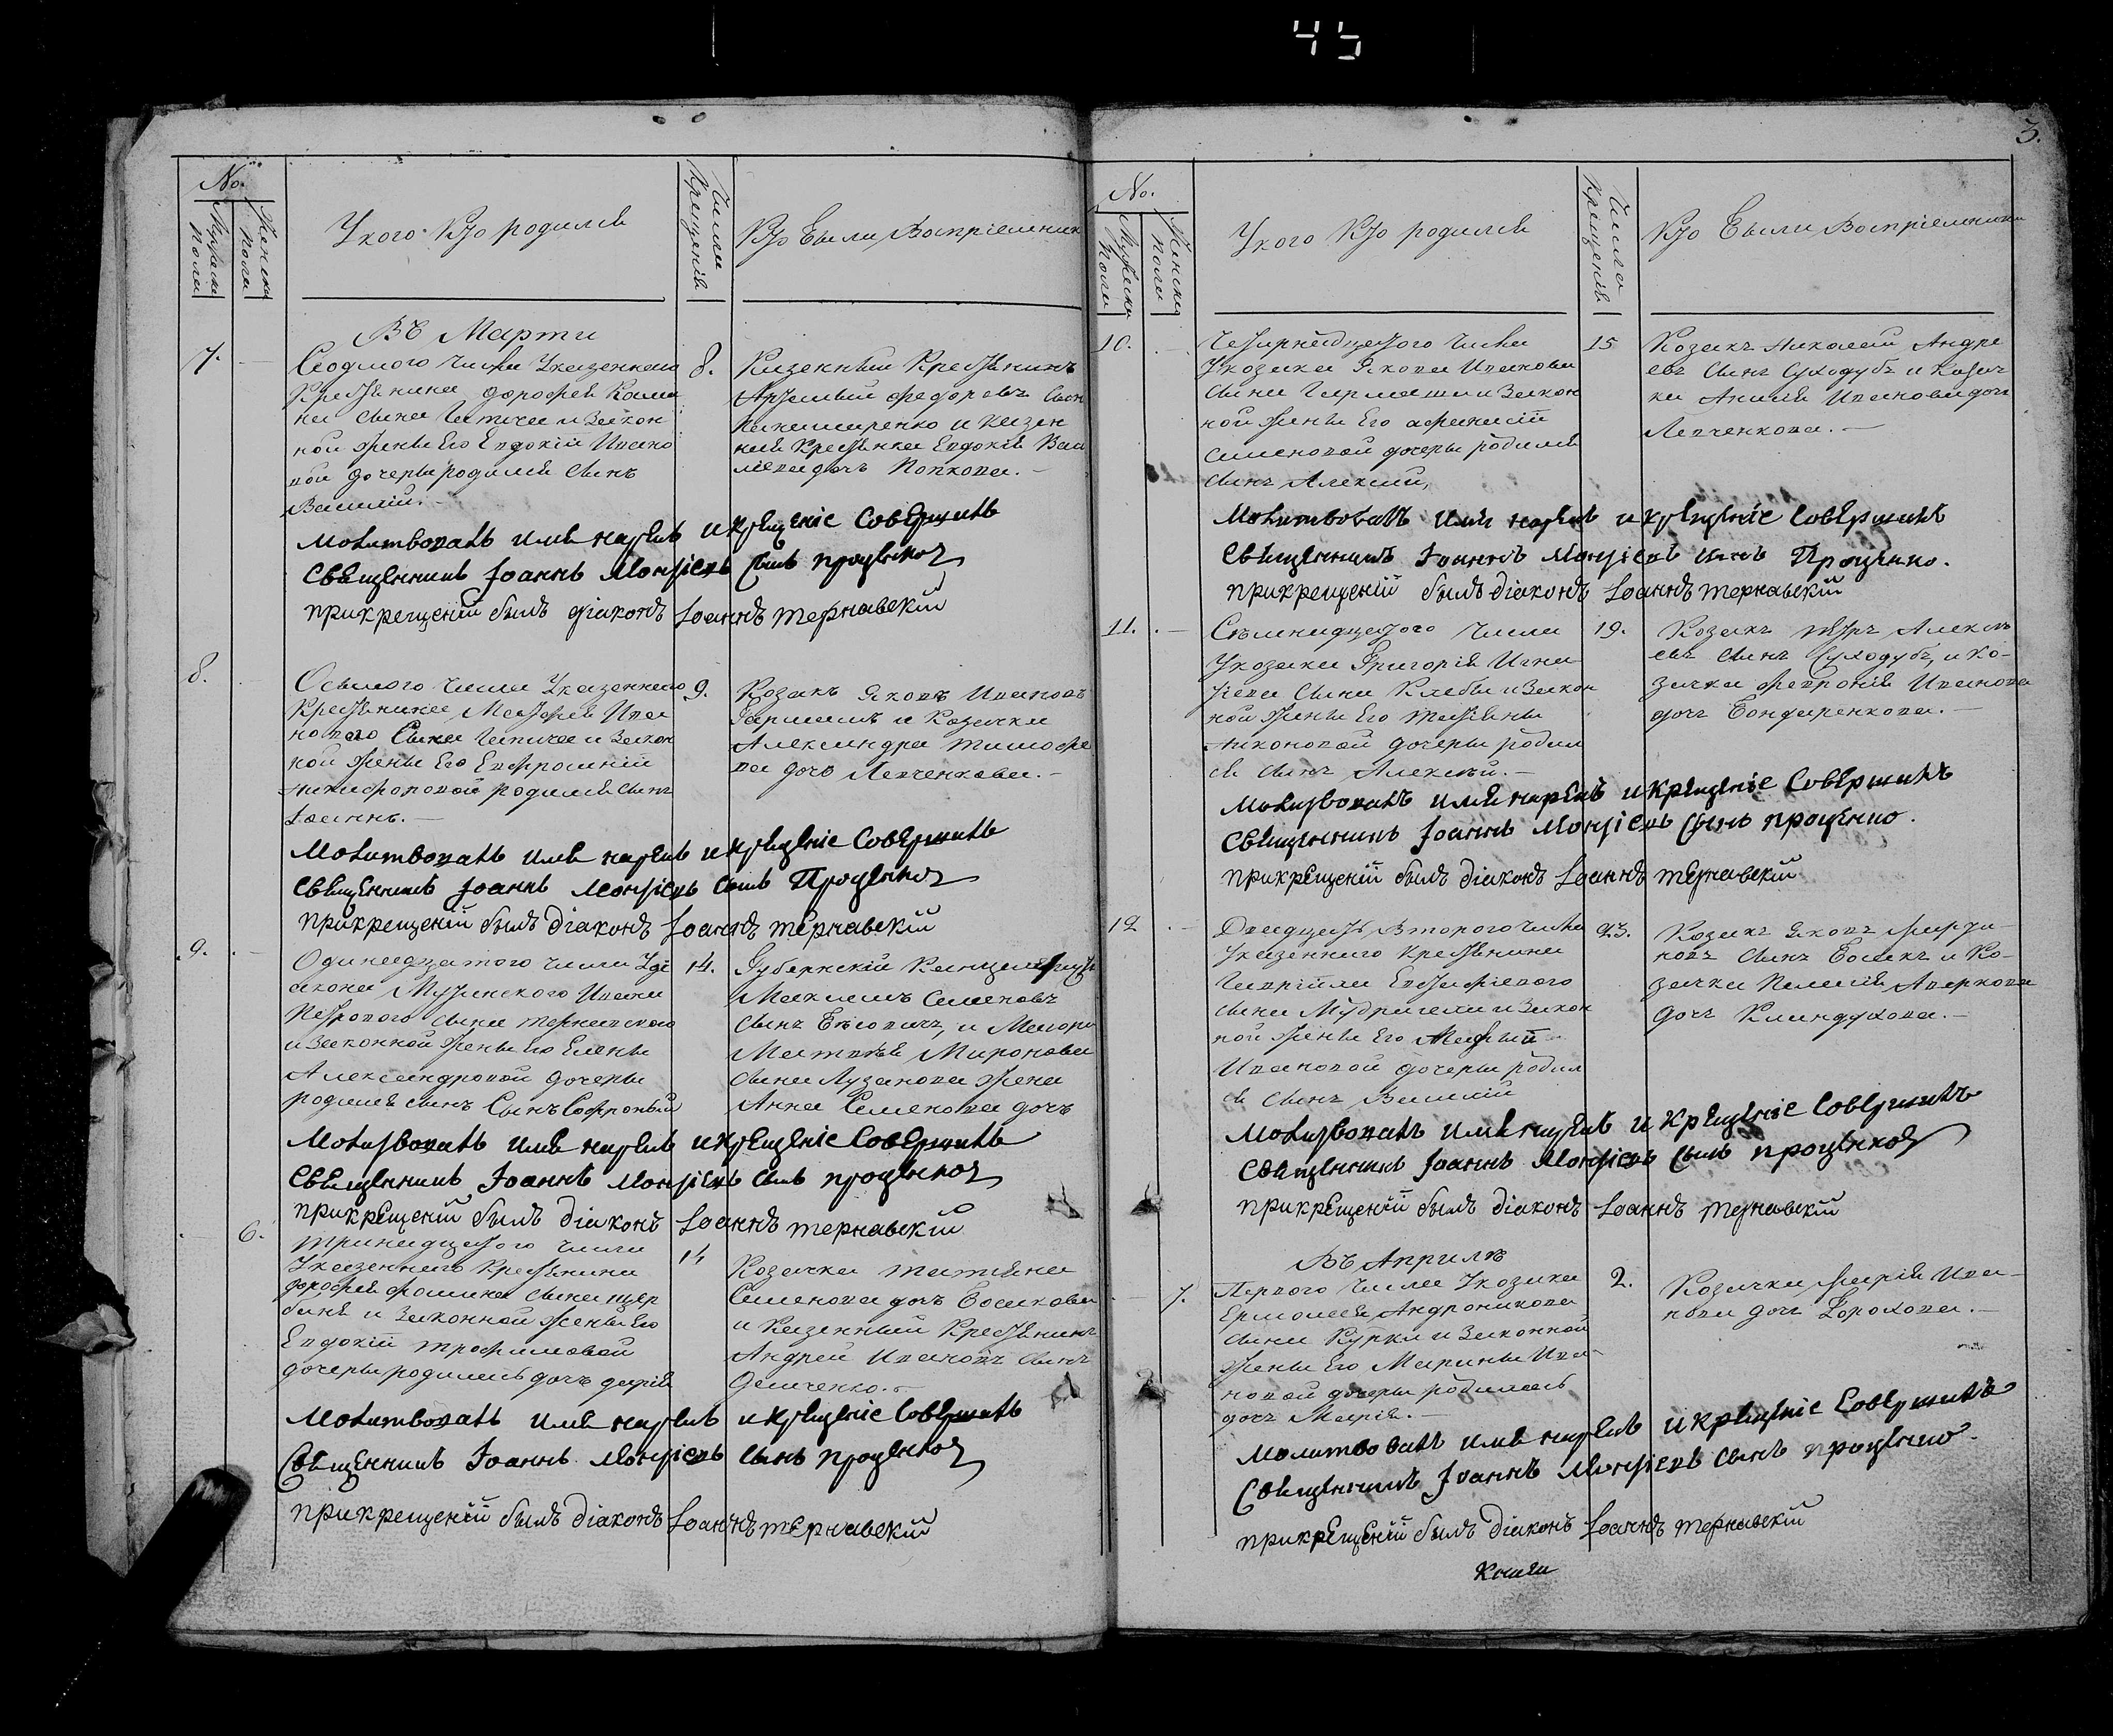 45
No.
Мужеска Пола
Женска Пола
Укого Кто родился
Число Крещенія
Кто были Воспріемники
Въ Марти
7.
Седмого числа Указенного
Крестьянина Дорофея
сына и Закон
ной жены Его Евдокіи Ивано
вой дочеры родился Сынъ
Василій.
8.
Казенный Крестьянинъ
Федоровъ Сын
и Казен
ная Крестьянка Евдокія Васи
ліева дочь Попкова.
Молитвовалъ имя нарекъ и крещеніе Совершилъ
Священникъ Іоаннъ Моисіевъ Сынъ Проценко
прикрещеніи былъ діаконъ Іоаннъ Тернавскій
8.
Осьмого числа Указенного
Крестьянина Матфея Ива
нового Сына и Закон
ной жены Его Евфросиніи
Никифоровой родился Сынъ
Іоаннъ.
9.
Козакъ Яковъ Ивановъ
и Козачка
Александра Тимофее
ва дочь Левченкова.
Молитвовалъ имя нарекъ и крещеніе Совершилъ
Священникъ Іоаннъ Моисіевъ Сынъ Проценко
прикрещеніи былъ діаконъ Іоаннъ Тернавскій
9.
Одинадцатого числа Уді
акона Ивана
Петрового Сына Тернавского
и Законной жены Его Елены
Александровой дочеры
родился сынъ Сынъ Софроній
14.
Губернскій
Максимъ Семеновъ
Сынъ и
Миронова
сына Лузанова жена
Анна Семенова дочь
Молитвовалъ имя нарекъ и крещеніе Совершилъ
Священникъ Іоаннъ Моисіевъ Сынъ Проценко
прикрещеніи былъ діаконъ Іоаннъ Тернавскій
6.
Тринадцатого числа
Указенного Крестьянина
Дорофея Фомина сына Щер
баня и Законной жены Его
Евдокіи Трофимовой
дочеры родилась дочь Дарія
14
Козачка Татіяна
Семенова дочь
и Казенный Крестьянинъ
Андрей Ивановъ Сынъ
Демченко.
Молитвовалъ имя нарекъ и крещеніе Совершилъ
Священникъ Іоаннъ Моисіевъ Сынъ Проценко
прикрещеніи былъ діаконъ Іоаннъ Тернавскій
3.
No.
Мужеска Пола
Женска Пола
Укого Кто родился
Число Крещенія
Кто Были Воспріемники
10.
Четырнадцатого Числа
Укозака Якова Иванова
сына и Закон
ной жены Его Афанасіи
Семеновой дочеры родился
Сынъ Алексій,
15
Козакъ Николай Андре
евъ Сынъ Суходубъ и Козач
ка Анисія Иванова дочь
Левченкова.
Молитвовалъ имя нарекъ и крещеніе Совершилъ
Священникъ Іоаннъ Моисіевъ сынъ Проценко.
прикрещеніи былъ діаконъ Іоаннъ Тернавскій
11.
Семнадцатого Числа
Укозака Григорія Игна
тіева Сына и Закон
ной жены Его Татіяны
Никоновой дочеры родил
ся Сынъ Алексѣй.
19.
Козакъ Петръ Алексѣ
евъ Сынъ Суходубъ, и Ко-
зачка Февронія Иванова
дочь Бондаренкова.
Молитвовалъ имя нарекъ и крещеніе Совершилъ
Священникъ Іоаннъ Моисіевъ Сынъ Проценко.
прикрещеніи былъ діаконъ Іоаннъ Тернавскій
12
Двадцать Второго Числа
Указенного Крестьянина
Гавріила Евстафіевого
сына и Закон
ной жены Его
Ивановой дочеры родил
ся Сынъ Василій
23.
Козакъ Яковъ
новъ Сынъ и Ко-
зачка Пелагія Аверкова
дочь Климдухова.
Молитвовалъ имя нарекъ и крещеніе Совершилъ
Священникъ Іоаннъ Моисіевъ Сынъ Проценко
прикрещеніи былъ діаконъ Іоаннъ Тернавскій
Въ Априлѣ
7.
Первого Числа Укозака
Ермолая Андроникова
сына Курки и Законной
жены Его Марины Ива-
новой дочеры родилась
дочь Марія.
2.
Козачка Марія Ива-
нова дочь
Молитвовалъ имя нарекъ и крещеніе Совершилъ
Священникъ Іоаннъ Моисіевъ Сынъ Проценко.
прикрещеніи былъ діаконъ Іоаннъ Тернавскій